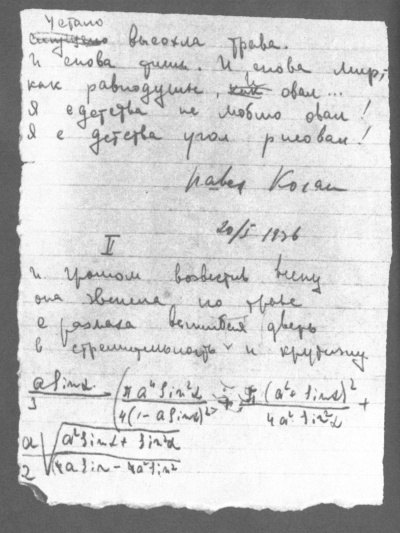 Устало
высохла трава.
И снова фишь. И снова мир,
как равнодушье, овал...
Я с детства не любил овал!
Я с детства угол рисовал!
Павел Коган
20/I 1936
II
и громом возвестив весну
она звенела по траве
с размаха вышибая дверь
в стремительность и крутизну
a sin α
3
π a⁴ sin² α
4(1 - a sin α)²
π (a² + sin α)²
4a² sin² α
+
a
2
√ a² sin α + sin² α
4a sin - 4a² sin²